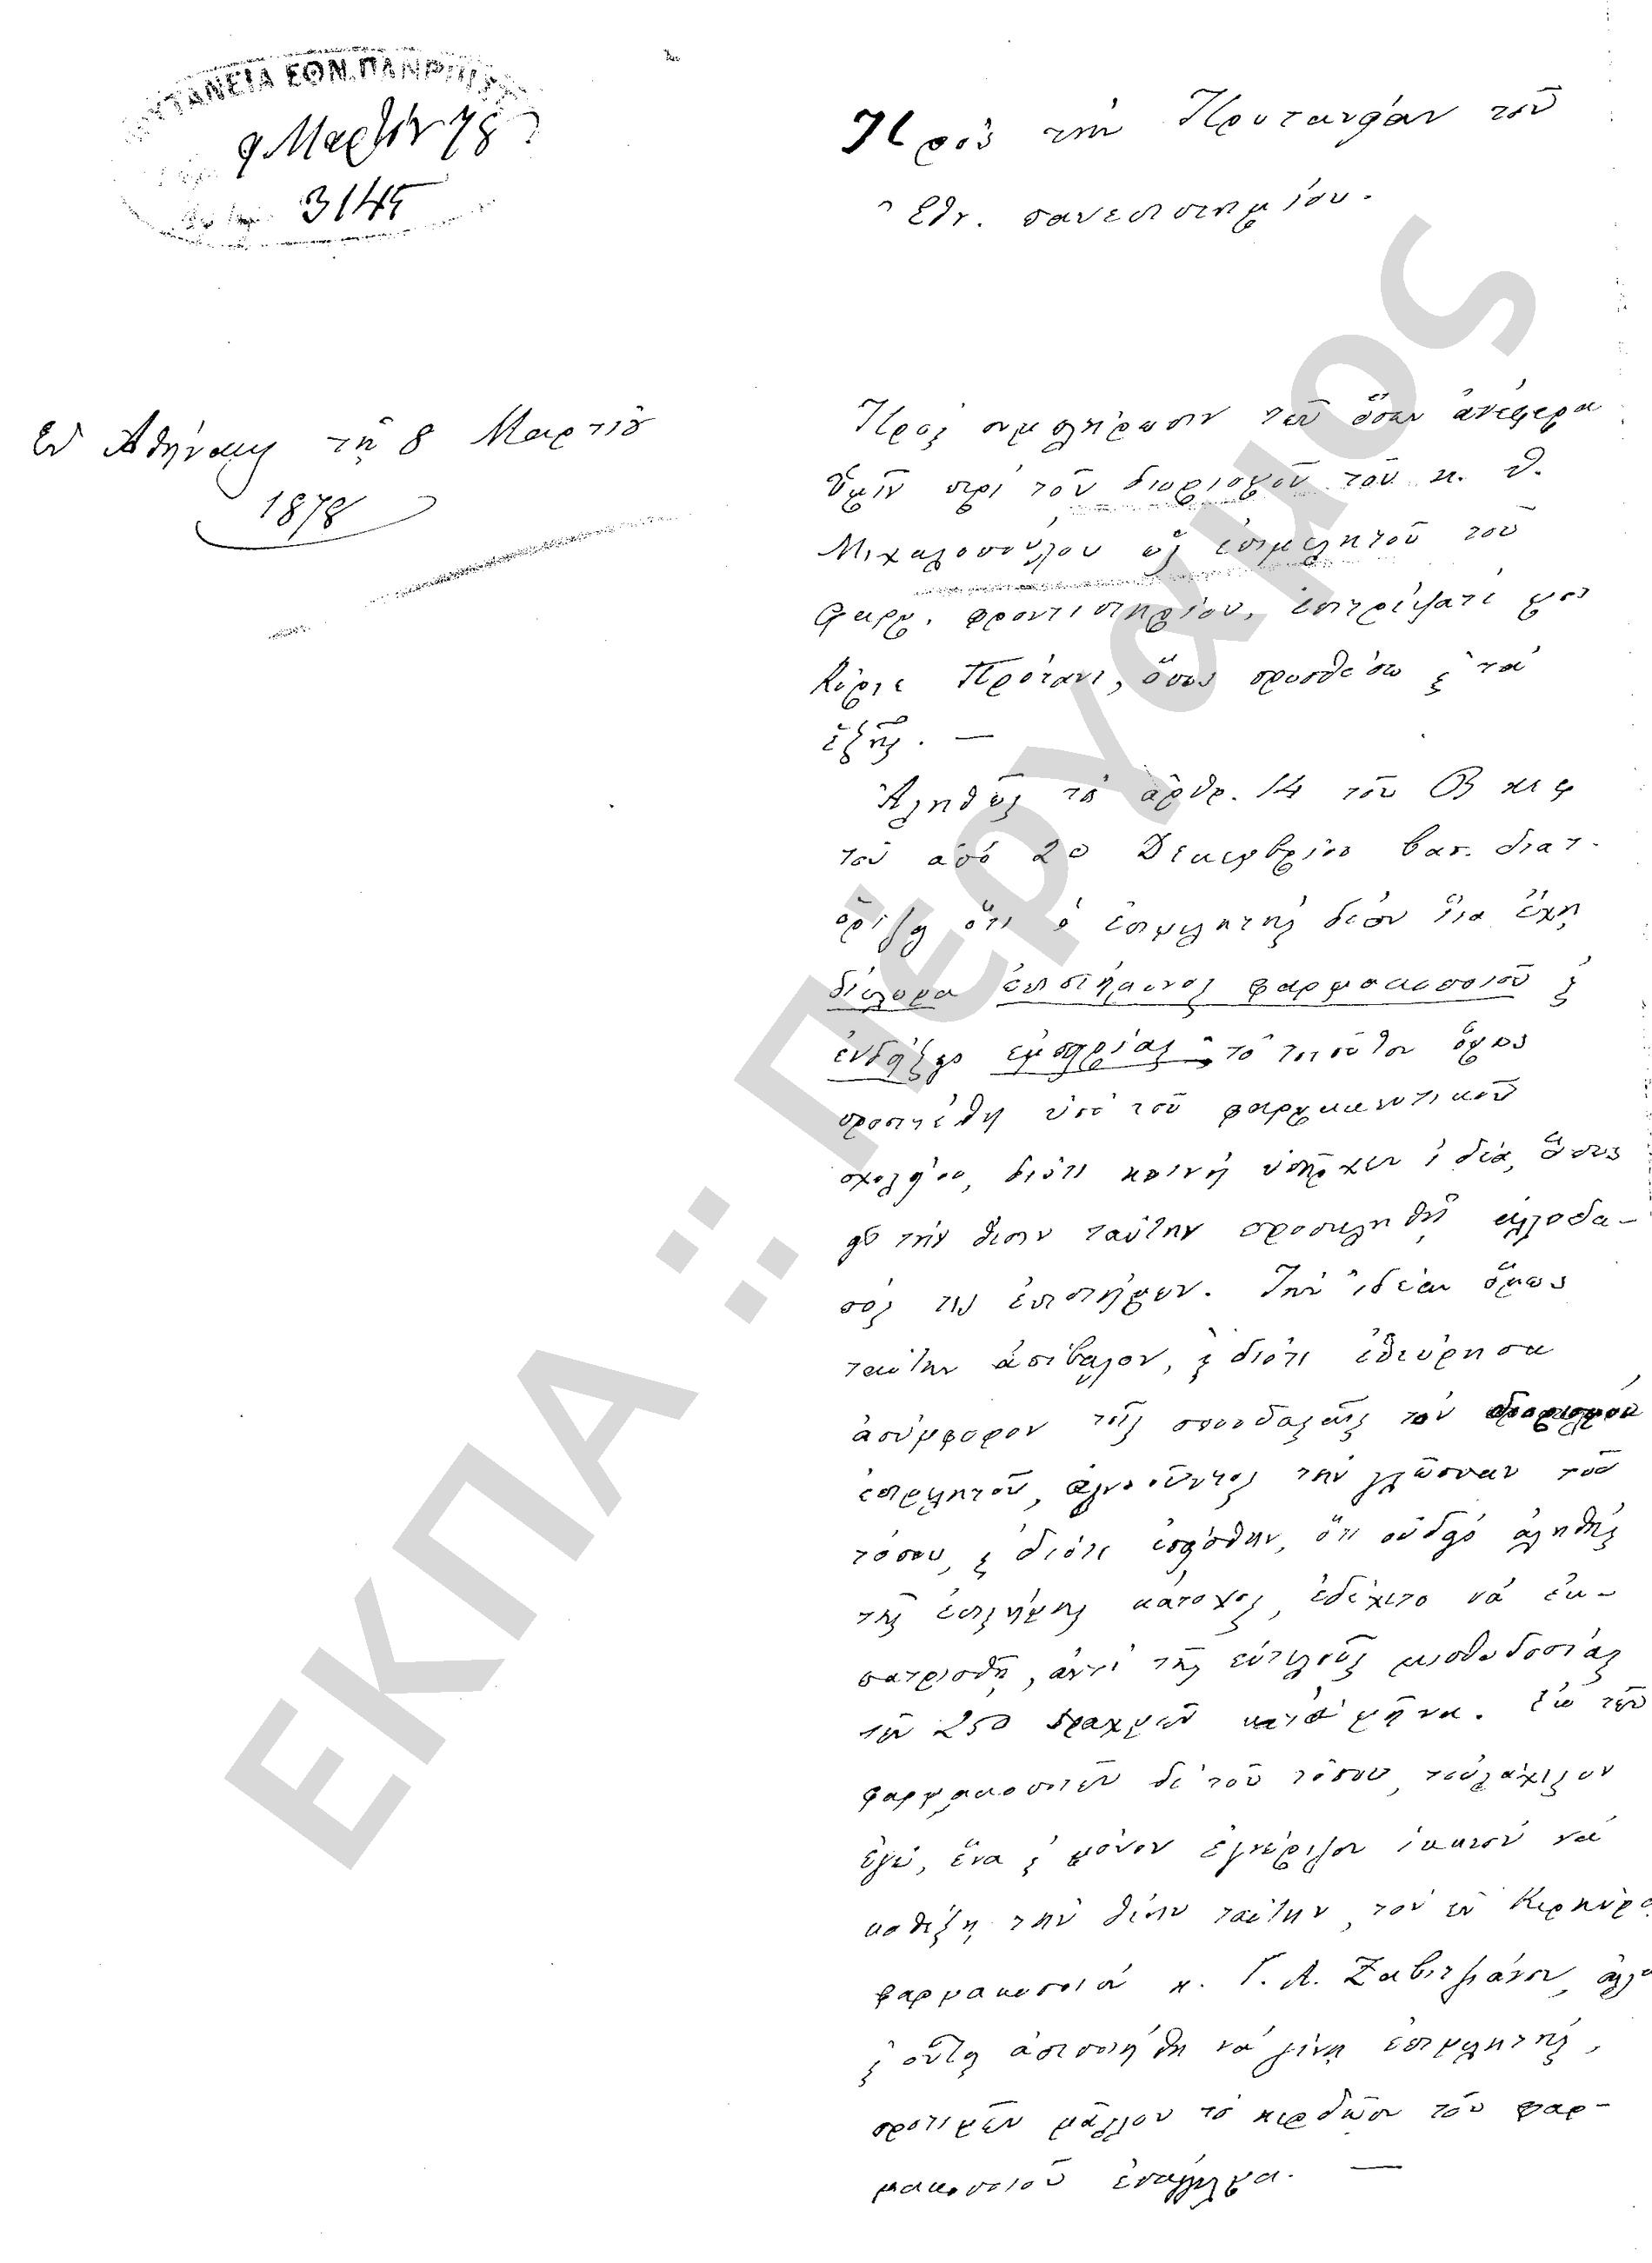 ΠΡΥΤΑΝΕΙΑ ΕΘΝ. ΠΑΝΕΠΙΣΤ
9 Μαρτίου 78
3145
Πρὸς τὴν Πρυτανείαν τοῦ
Ἐθν. πανεπιστημίου.
Ἐν Ἀθήναις τῇ 8 Μαρτίου
1878
Πρὸς συμπλήρωσιν τῶν ὅσων ἀνέφερα
ὑμῖν περὶ τοῦ διορισμοῦ τοῦ κ. Θ.
Μιχαλοπούλου ὡς ἐπιμελητοῦ τοῦ
φαρμ. φροντιστηρίου, ἐπιτρέψατέ μοι
Κύριε Πρύτανι, ὅπως προσθέσω καὶ τὰ
ἑξῆς. —
Ἀληθῶς τὸ ἄρθρ. 14 τοῦ Β κεφ
τοῦ ἀπὸ 20 Δεκεμβρίου βασ. διατ.
ὁρίζει ὅτι ὁ ἐπιμελητὴς δέον ἵνα ἔχῃ
δίπλωμα ἐπιστήμονος φαρμακοποιοῦ καὶ
ἐνδείξεις ἐμπειρίας· τὸ τοιοῦτον ὅμως
προσετέθη ὑπὸ τοῦ φαρμακευτικοῦ
σχολείου, διότι κοινὴ ὑπῆρχεν ἰδέα, ὅπως
εἰς τὴν θέσιν ταύτην προσκληθῇ ἀλλοδα-
πός τις ἐπιστήμων. Τὴν ἰδέαν ὅμως
ταύτην ἀπέβαλον, καὶ διότι ἐθεώρησα
ἀσύμφορον τοῖς σπουδασταῖς τὸν διορισμὸν
ἐπιμελητοῦ, ἀγνοοῦντος τὴν γλῶσσαν τοῦ
τόπου, καὶ διότι ἐπείσθην, ὅτι οὐδεὶς ἀληθὴς
τῆς ἐπιστήμης κάτοχος, ἐδέχετο νὰ ἐκ-
πατρισθῇ, ἀντὶ τῆς εὐτελοῦς μισθοδοσίας
τῶν 250 δραχμῶν κατὰ μῆνα. Ἐκ τῶν
φαρμακοποιῶν δὲ τοῦ τόπου, τοὐλάχιστον
ἐγώ, ἕνα καὶ μόνον ἐγνώριζον ἱκανὸν νὰ
καθέξῃ τὴν θέσιν ταύτην, τὸν ἐν Κερκύρᾳ
φαρμακοποιὸν κ. Γ. Α. Ζαβιτζιάνον, ἀλλὰ
καὶ οὗτος ἀπεποιήθη νὰ γίνῃ ἐπιμελητής,
προτιμῶν μᾶλλον τὸ κερδῶον τοῦ φαρ-
μακοποιοῦ ἐπάγγελμα. —
ΕΚΠΑ :: Πέργαμος